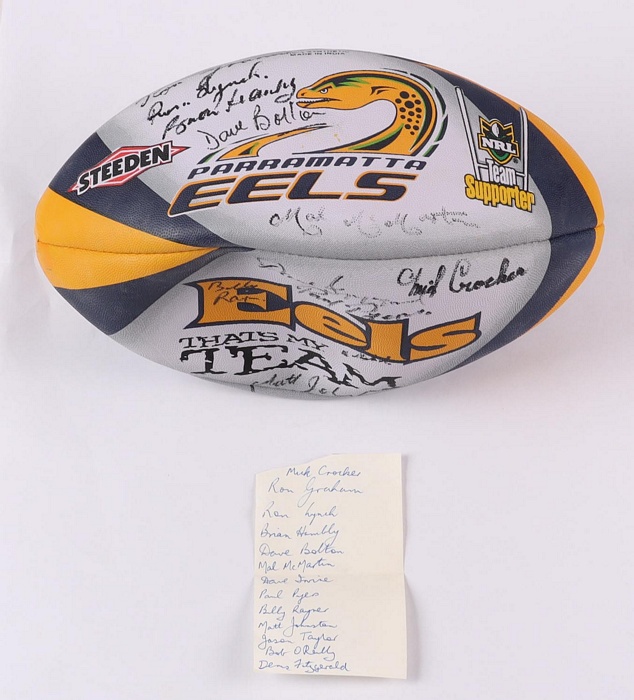 MADE IN INDIA
Ron Lynch
Brian Hambly
Dave Bolton
STEEDEN
PARRAMATTA
EELS
NRL
Team
Supporter
Mal McMartin
Mick Crocker
Billy
Ray
Eels
THAT'S MY
TEAM
Matt
Mick Crocker
Ron Graham
Ron Lynch
Brian Hambly
Dave Bolton
Mal McMartin
Dave Irvine
Paul Pyers
Billy Rayner
Matt Johnston
Jason Taylor
Bob O'Reilly
Denis Fitzgerald